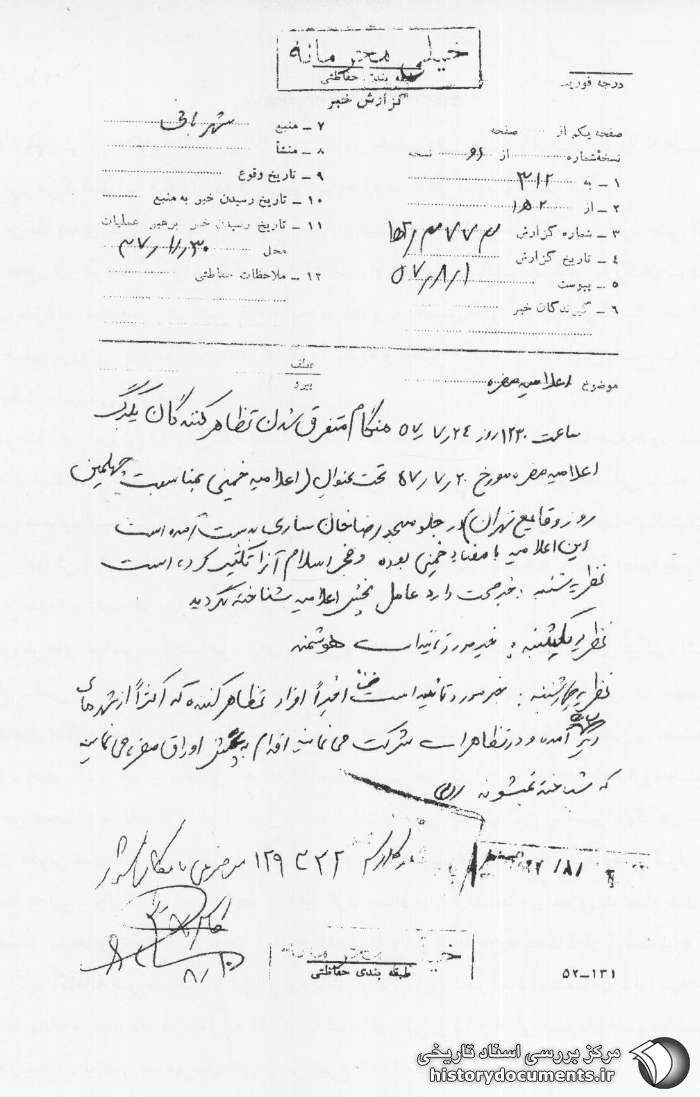 خیلی محرمانه
طبقه بندی حفاظتی
گزارش خبر
درجه فوریت
صفحه یکم از صفحه
نسخهٔ شماره از نسخه
۱ – به ۳۱۲
۲ – از ۱۵۲
۳ – شماره گزارش
۴ – تاریخ گزارش
۵ – پیوست ۵۷٫۸٫۱
۶ – گیرندگان خبر
۷ – منبع
۸ – منشأ
۹ – تاریخ وقوع
۱۰ – تاریخ رسیدن خبر به منبع
۱۱ – تاریخ رسیدن خبر برهبر عملیات
محل
۱۲ – ملاحظات حفاظتی
عطف
پیرو
موضوع اعلامیه مضره
ساعت ۱۲۳۰ روز ۵۷٫۷٫۲۴ هنگام متفرق شدن تظاهرکنندگان یکبرگ
اعلامیه مضره مورخ ۵۷٫۷٫۲۰ تحت عنوان (اعلامیه خمینی بمناسبت چهلمین
روز وقایع تهران) در جلو مسجد رضاخان ساری بدست آمده است
این اعلامیه با مضاء خمینی بوده و فجر اسلام آنرا تکثیر کرده است
نظریه شنبه : خبر صحت دارد عامل پخش اعلامیه شناخته نگردید
نظریه یکشنبه : خبر مورد تائید است هوشمند
نظریه چهارشنبه : خبر مورد تائید است ضمناً اخیراً افراد تظاهرکننده که اکثراً از شهرهای
دیگر آمده و در تظاهرات شرکت می نمایند اقدام به پخش اوراق مضره می نمایند
که شناخته نمیشوند
خیلی محرمانه
طبقه بندی حفاظتی
۵۲–۱۳۱
مرکز بررسی اسناد تاریخی
historydocuments.ir